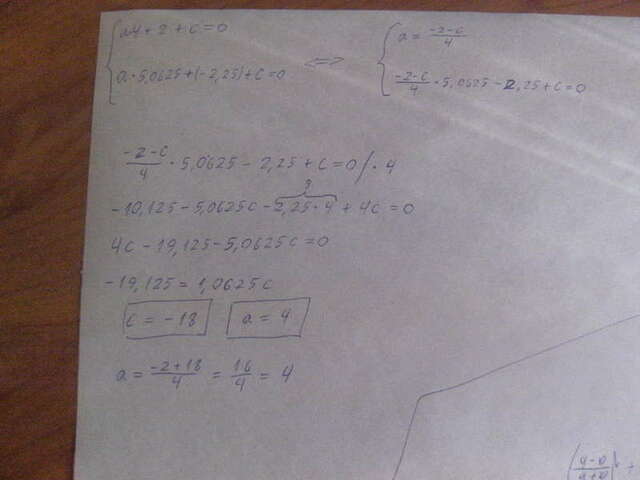 { a4 + 2 + c = 0
a · 5,0625 + (-2,25) + c = 0
<=>
{ a = \frac{-2-c}{4}
\frac{-2-c}{4} · 5,0625 - 2,25 + c = 0
\frac{-2-c}{4} · 5,0625 - 2,25 + c = 0 / · 4
9
-10,125 - 5,0625c - 2,25 · 4 + 4c = 0
4c - 19,125 - 5,0625c = 0
-19,125 = 1,0625c
c = -18 a = 4
a = \frac{-2+18}{4} = \frac{16}{4} = 4